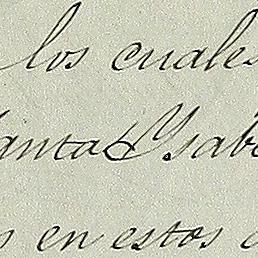 los cuales
Santa Ysabe
en estos